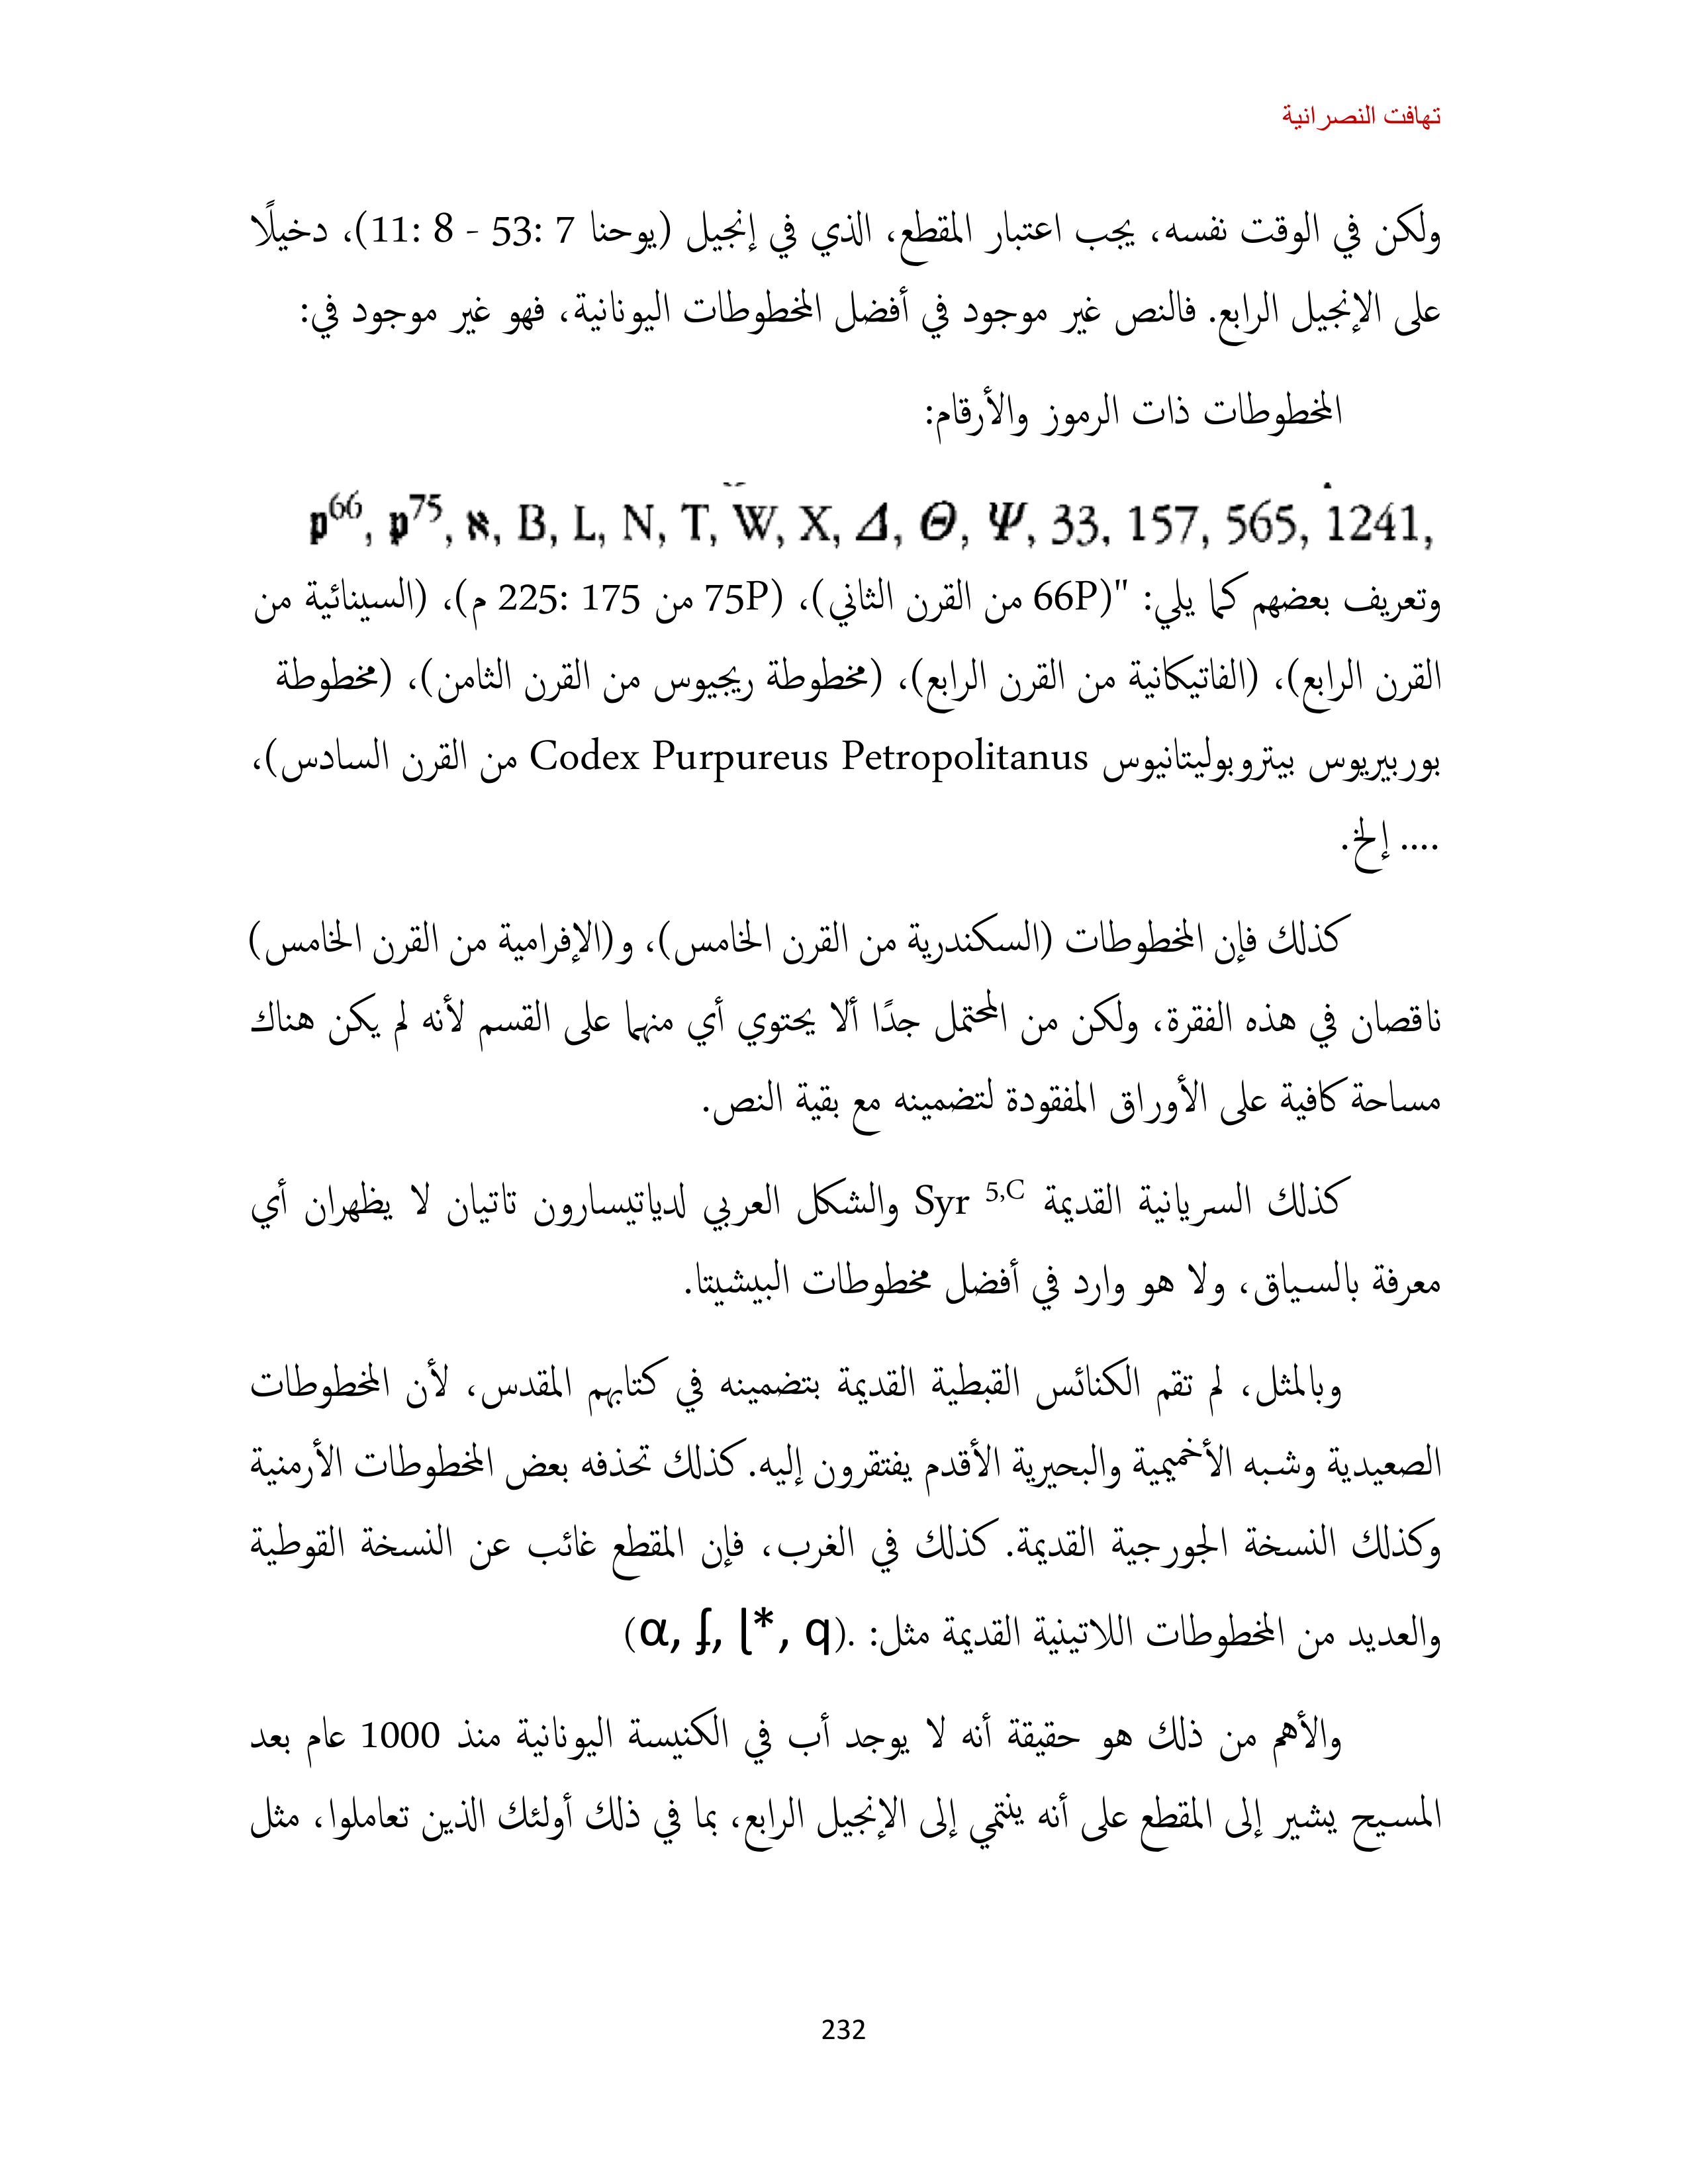 تهافت النصرانية
ولكن في الوقت نفسه، يجب اعتبار المقطع، الذي في إنجيل (يوحنا 7 :53 - 8 :11)، دخيلًا
على الإنجيل الرابع. فالنص غير موجود في أفضل المخطوطات اليونانية، فهو غير موجود في:
المخطوطات ذات الرموز والأرقام:
𝔭⁶⁶, 𝔭⁷⁵, ℵ, B, L, N, T, W, X, Δ, Θ, Ψ, 33, 157, 565, 1241,
وتعريف بعضهم كما يلي: "(66P من القرن الثاني)، (75P من 175 :225 م)، (السينائية من
القرن الرابع)، (الفاتيكانية من القرن الرابع)، (مخطوطة ريجيوس من القرن الثامن)، (مخطوطة
بوربيريوس بيتروبوليتانيوس Codex Purpureus Petropolitanus من القرن السادس)،
.... إلخ.
كذلك فإن المخطوطات (السكندرية من القرن الخامس)، و(الإفرامية من القرن الخامس)
ناقصان في هذه الفقرة، ولكن من المحتمل جدًا ألا يحتوي أي منهما على القسم لأنه لم يكن هناك
مساحة كافية على الأوراق المفقودة لتضمينه مع بقية النص.
كذلك السريانية القديمة Syr ⁵,ᶜ والشكل العربي لدياتيسارون تاتيان لا يظهران أي
معرفة بالسياق، ولا هو وارد في أفضل مخطوطات البيشيتا.
وبالمثل، لم تقم الكنائس القبطية القديمة بتضمينه في كتابهم المقدس، لأن المخطوطات
الصعيدية وشبه الأخميمية والبحيرية الأقدم يفتقرون إليه. كذلك تحذفه بعض المخطوطات الأرمنية
وكذلك النسخة الجورجية القديمة. كذلك في الغرب، فإن المقطع غائب عن النسخة القوطية
والعديد من المخطوطات اللاتينية القديمة مثل: .(α, ʄ, ɭ*, q)
والأهم من ذلك هو حقيقة أنه لا يوجد أب في الكنيسة اليونانية منذ 1000 عام بعد
المسيح يشير إلى المقطع على أنه ينتمي إلى الإنجيل الرابع، بما في ذلك أولئك الذين تعاملوا، مثل
232